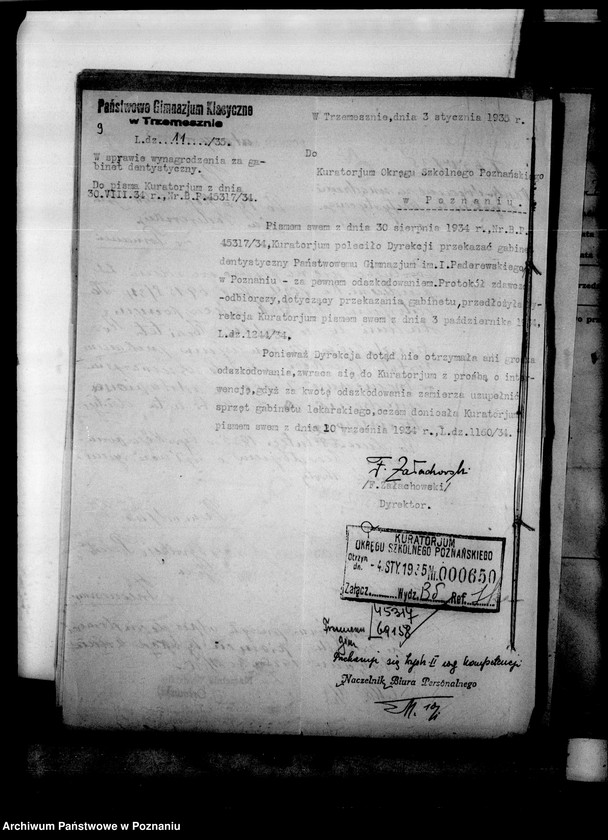 Państwowe Gimnazjum Klasyczne
w Trzemesznie
9
L.dz...11..../35.
W sprawie wynagrodzenia za ga-
binet dentystyczny.
Do pisma Kuratorjum z dnia
30.VIII.34 r.,Nr.B.P.45317/34.
W Trzemesznie,dnia 3 stycznia 1935 r.
Do
Kuratorjum Okręgu Szkolnego Poznańskiego
w Poznaniu.
Pismem swem z dnia 30 sierpnia 1934 r.,Nr.B.P.
45317/34,Kuratorjum poleciło Dyrekcji przekazać gabinet
dentystyczny Państwowemu Gimnazjum im.I.Paderewskiego
w Poznaniu - za pewnem odszkodowaniem.Protokół zdawczo
-odbiorczy,dotyczący przekazania gabinetu,przedłożyła Dy-
rekcja Kuratorjum pismem swem z dnia 3 października 1934,
L.dz.1244/34.
Ponieważ Dyrekcja dotąd nie otrzymała ani grosza
odszkodowania,zwraca się do Kuratorjum z prośbą o inter-
wencję,gdyż za kwotę odszkodowania zamierza uzupełnić
sprzęt gabinetu lekarskiego,oczem doniosła Kuratorjum
pismem swem z dnia 10 września 1934 r.,L.dz.1160/34.
F. Załachowski
/F.Załachowski/
Dyrektor.
KURATORJUM
OKRĘGU SZKOLNEGO POZNAŃSKIEGO
Otrzym.
dn. - 4. STY. 1935 Nr. 000650
Załącz.......... Wydz. BS Ref.
45317
69158
się kompetencji
Naczelnik Biura Personalnego
Archiwum Państwowe w Poznaniu